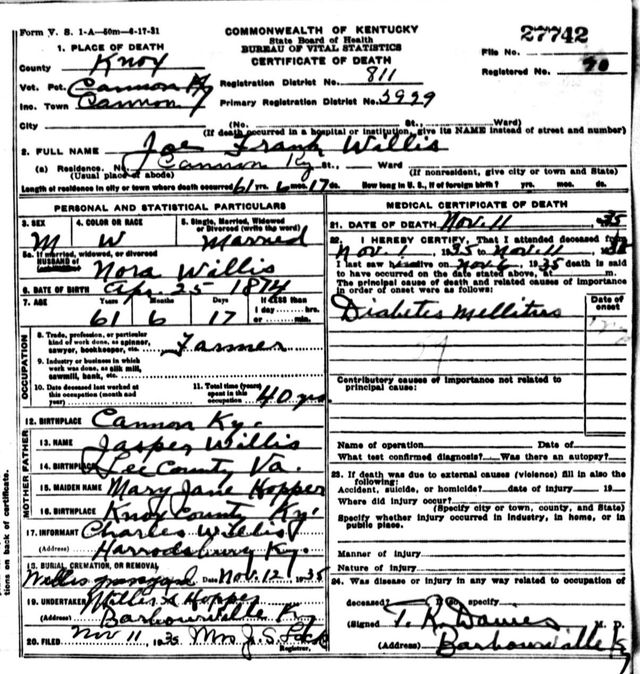 Form V. S. 1-A—50m—6-17-31
COMMONWEALTH OF KENTUCKY
State Board of Health
BUREAU OF VITAL STATISTICS
CERTIFICATE OF DEATH
27742
File No.
Registered No. 90
1. PLACE OF DEATH
County Knox
Vot. Pct. Cannon Ky
Inc. Town Cannon
Registration District No. 811
Primary Registration District No. 5999
City (No. St., Ward)
(If death occurred in a hospital or institution, give its NAME instead of street and number)
2. FULL NAME Joe Frank Willis
(a) Residence. No. Cannon Ky St., Ward
(Usual place of abode) (If nonresident, give city or town and State)
Length of residence in city or town where death occurred 61 yrs. 6 mos. 17 ds. How long in U. S., if of foreign birth? yrs. mos. ds.
PERSONAL AND STATISTICAL PARTICULARS
3. SEX 4. COLOR OR RACE 5. Single, Married, Widowed
or Divorced (write the word)
M W Married
5a. If married, widowed, or divorced
HUSBAND of
Nora Willis
6. DATE OF BIRTH Apr. 25 1874
7. AGE Years Months Days If LESS than
1 day hrs.
61 6 17 or min.
OCCUPATION
8. Trade, profession, or particular
kind of work done, as spinner,
sawyer, bookkeeper, etc. Farmer
9. Industry or business in which
work was done, as silk mill,
sawmill, bank, etc.
10. Date deceased last worked at
this occupation (month and
year)
11. Total time (years)
spent in this
occupation 40 yrs
12. BIRTHPLACE Cannon Ky.
FATHER
13. NAME Jasper Willis
14. BIRTHPLACE Lee County Va.
MOTHER
15. MAIDEN NAME Mary Jane Hopper
16. BIRTHPLACE Knox County Ky.
17. INFORMANT Charles Willis
(Address) Harrodsburg Ky.
18. BURIAL, CREMATION, OR REMOVAL
Willis graveyard Date Nov. 12 1935
19. UNDERTAKER Willis & Hopper
(Address) Barbourville Ky.
20. FILED Nov 11, 1935 Mrs J. S.
Registrar.
MEDICAL CERTIFICATE OF DEATH
21. DATE OF DEATH Nov. 11 1935
22. I HEREBY CERTIFY, That I attended deceased from
Nov. 1 1935 to Nov 11, 1935
I last saw h alive on Nov. 6 1935 death is said
to have occurred on the date stated above, at m.
The principal cause of death and related causes of importance
in order of onset were as follows:
Date of
onset
Diabetes Mellitus
Contributory causes of importance not related to
principal cause:
Name of operation Date of
What test confirmed diagnosis? Was there an autopsy?
23. If death was due to external causes (violence) fill in also the
following:
Accident, suicide, or homicide? date of injury 19
Where did injury occur?
(Specify city or town, county, and State)
Specify whether injury occurred in industry, in home, or in
public place.
Manner of injury
Nature of injury
24. Was disease or injury in any way related to occupation of
deceased? If so specify
(Signed T. R. Davies M. D.
(Address) Barbourville Ky
tions on back of certificate.